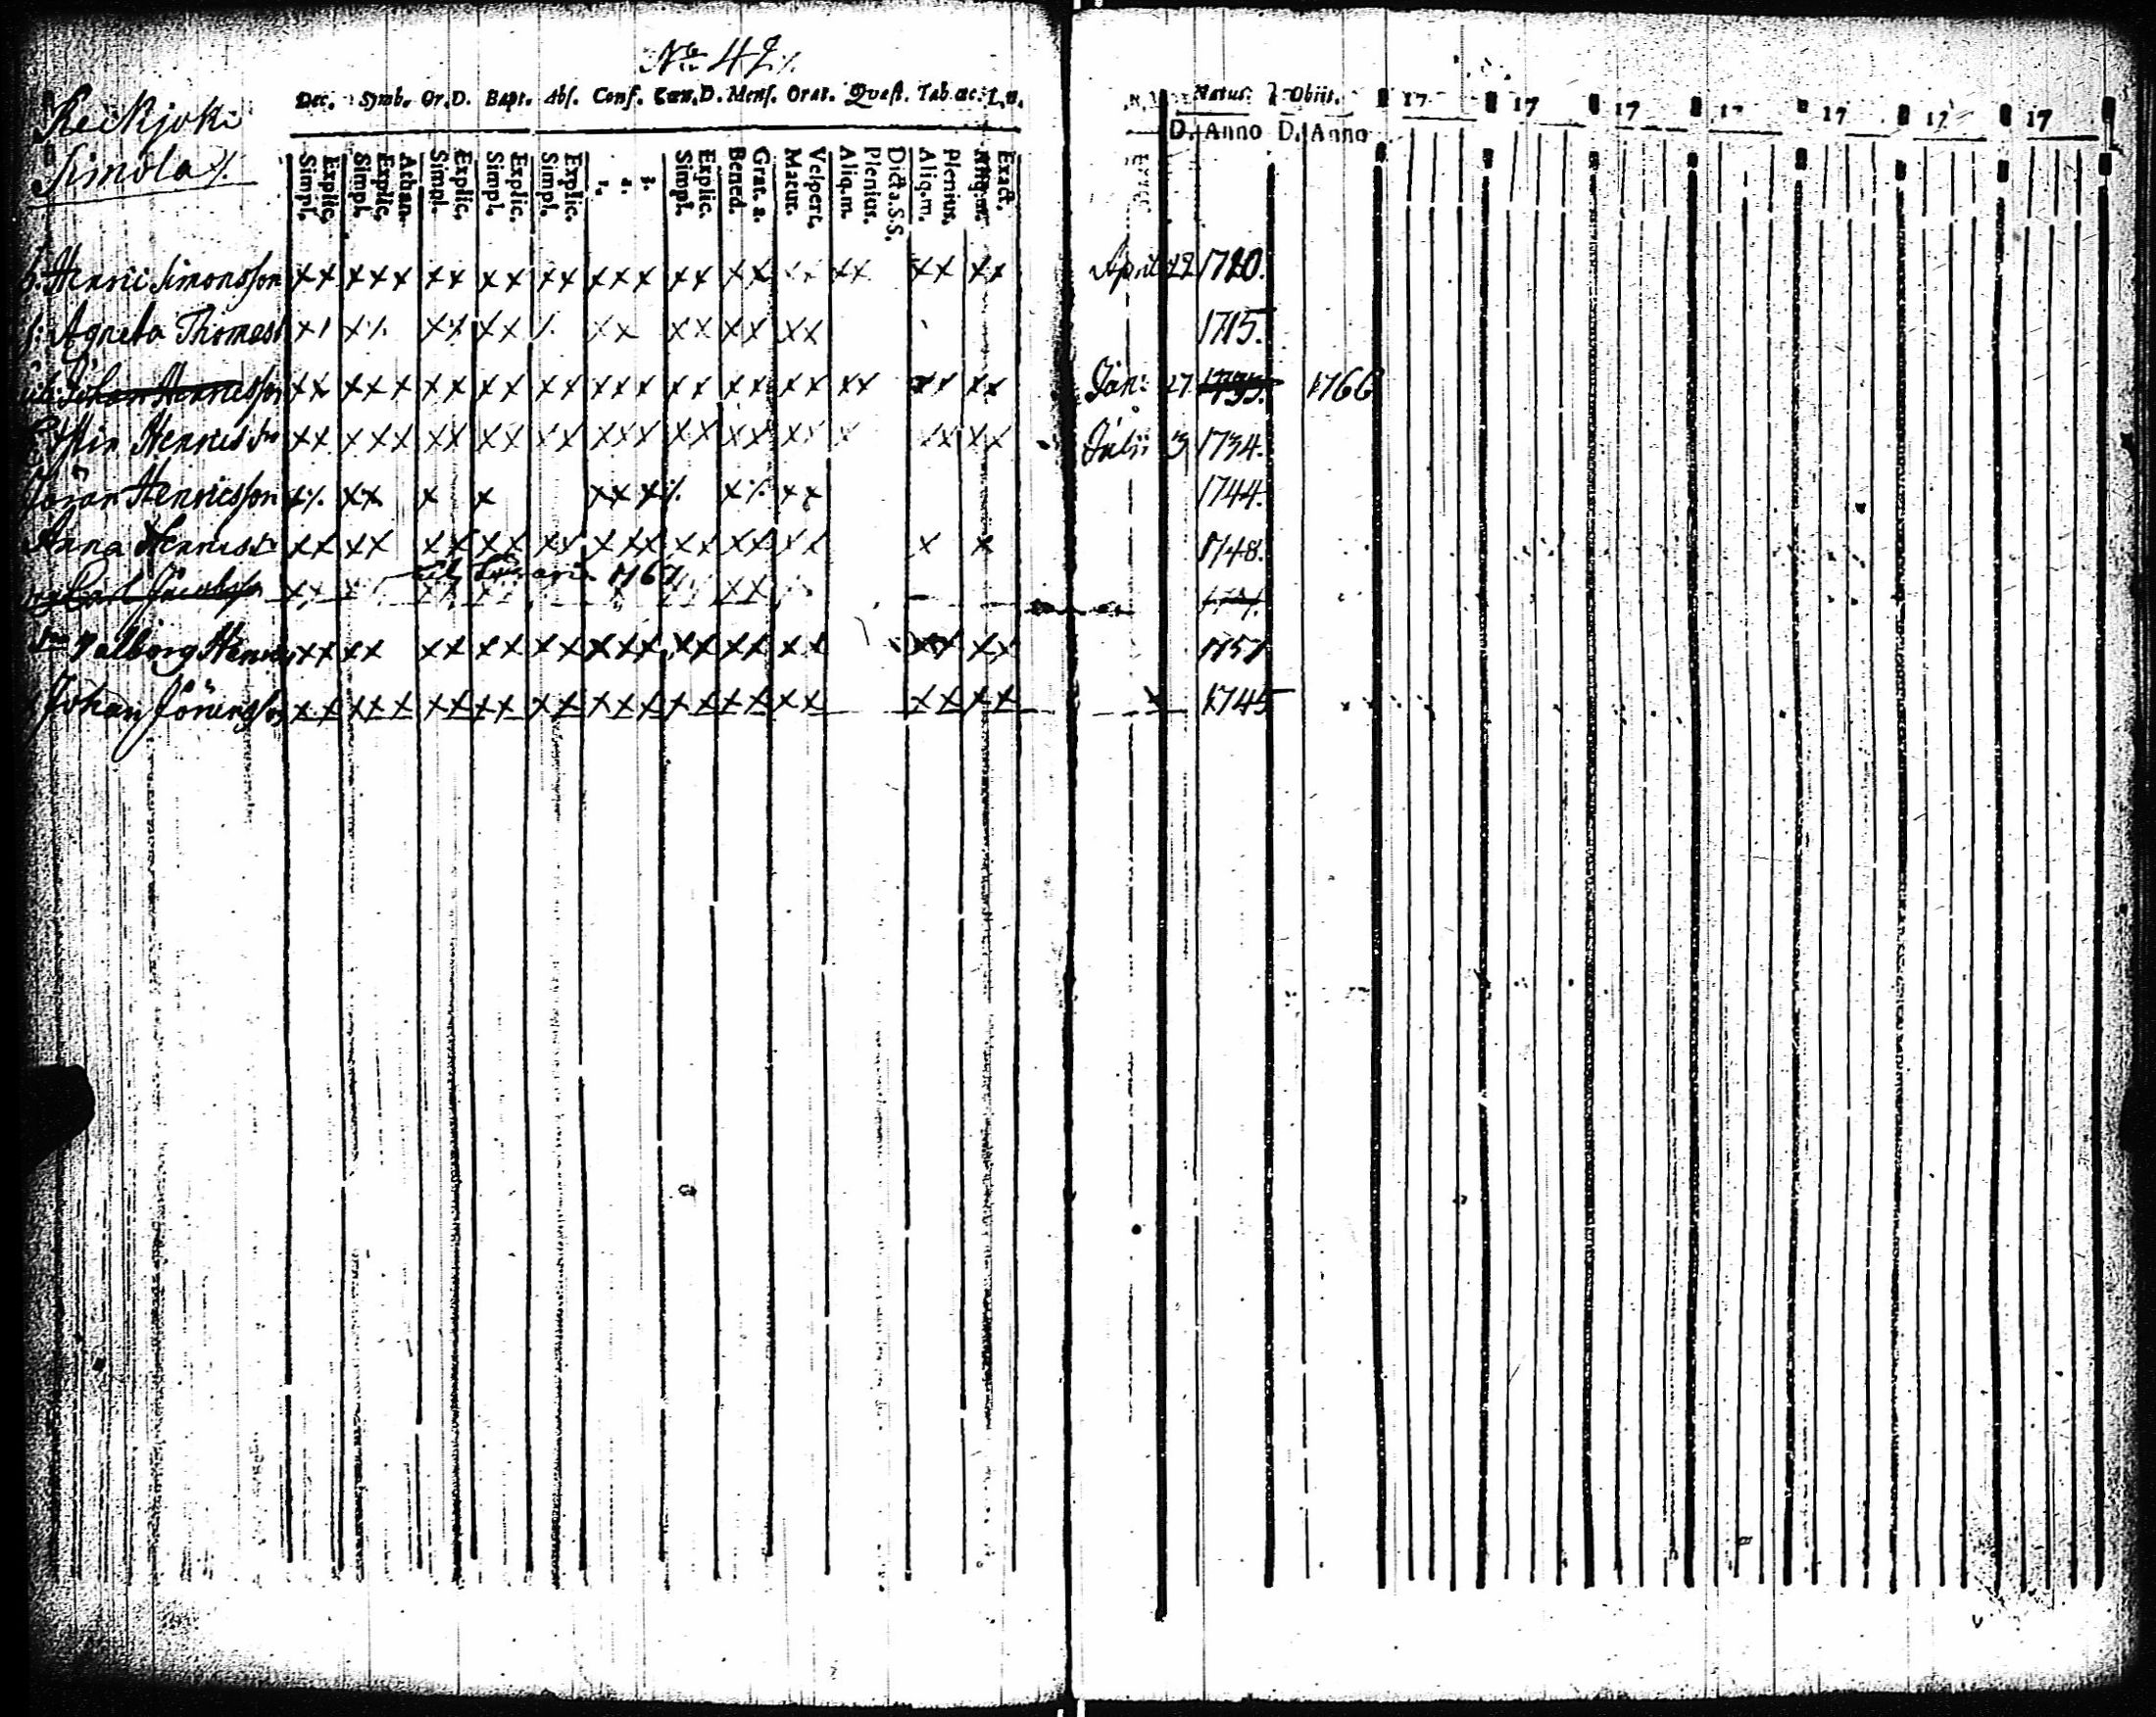 No 42 ⁒
Keikjoki
Simola ⁒
Dec. Symb. Or. D. Bapt. Abs. Conf. Cœn. D. Mens. Orat. Quæst. Tab. œc. L. n.
Simpl. Explic. Simpl. Explic. Athan. Simpl. Explic. Simpl. Explic. Simpl. Explic. 1. 2. 3. Simpl. Explic. Bened. Grat. a. Matut. Vespert. Aliq.m. Plenius. Dicta S.S. Aliq.m. Plenius. Aliq.m. Exact.
Natus. Obiit. 17 17 17 17 17 17 17
D. Anno D. Anno
b. Henric Simonsson xx xxx xx xx xx xxx xx xx xx xx xx xx April 22 1720.
Agneta Thomasd 1715.
Johan Henricsson xx xxx xx xx xx xxx xx xx xx xx xx xx Jan: 27 1766
Henricsdr xx xxx xx xx xx xxx xx xx xx x xx xx Julii 3 1734.
Jöran Henricsson 1744.
Anna Henricsdr xx xx xx xx xx xxx xx xx xx x x 1748.
1767
Carl Jacobsson
Valborg Henricsd xx xx xx xx xx xxx xx xx xx xx xx 1751
Johan Jöransson xx xxx xx xx xx xxx xx xx xx xx xx 1745